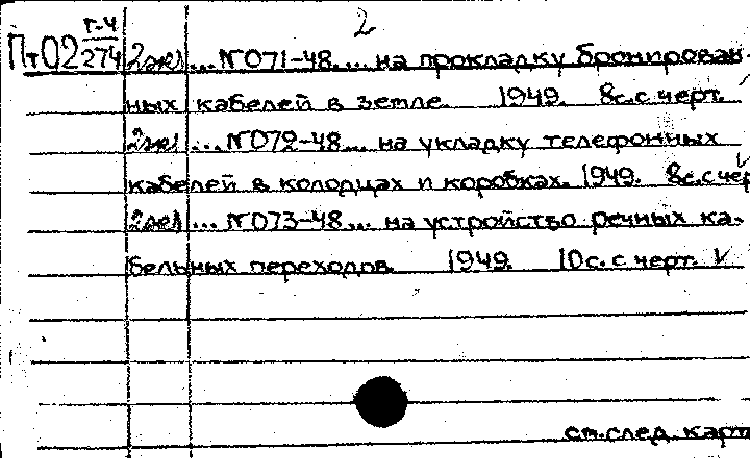 2
Пт02 Г-4/274 2экз ... №071-48 ... на прокладку бронирован-
ных кабелей в земле. 1949. 8с. с черт.
2экз ... №072-48 ... на укладку телефонных
кабелей в колодцах и коробках. 1949. 8с. с чер
2экз ... №073-48 ... на устройство речных ка-
бельных переходов. 1949. 10с. с черт.
см. след. карт